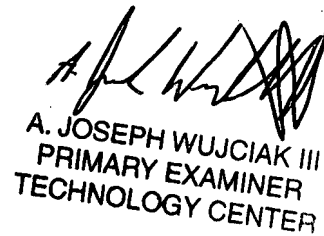 A. JOSEPH WUJCIAK III
PRIMARY EXAMINER
TECHNOLOGY CENTER